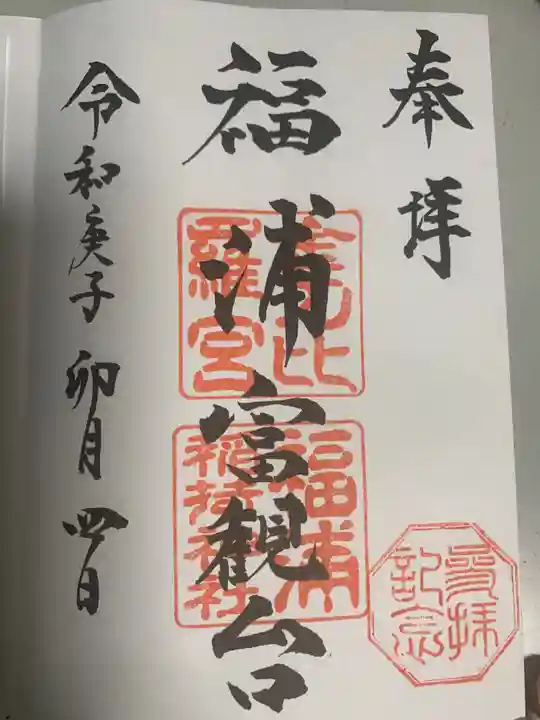 奉拝
福浦富観台
金比羅宮
福浦稲荷神社
参拝記念
令和庚子 卯月 四日